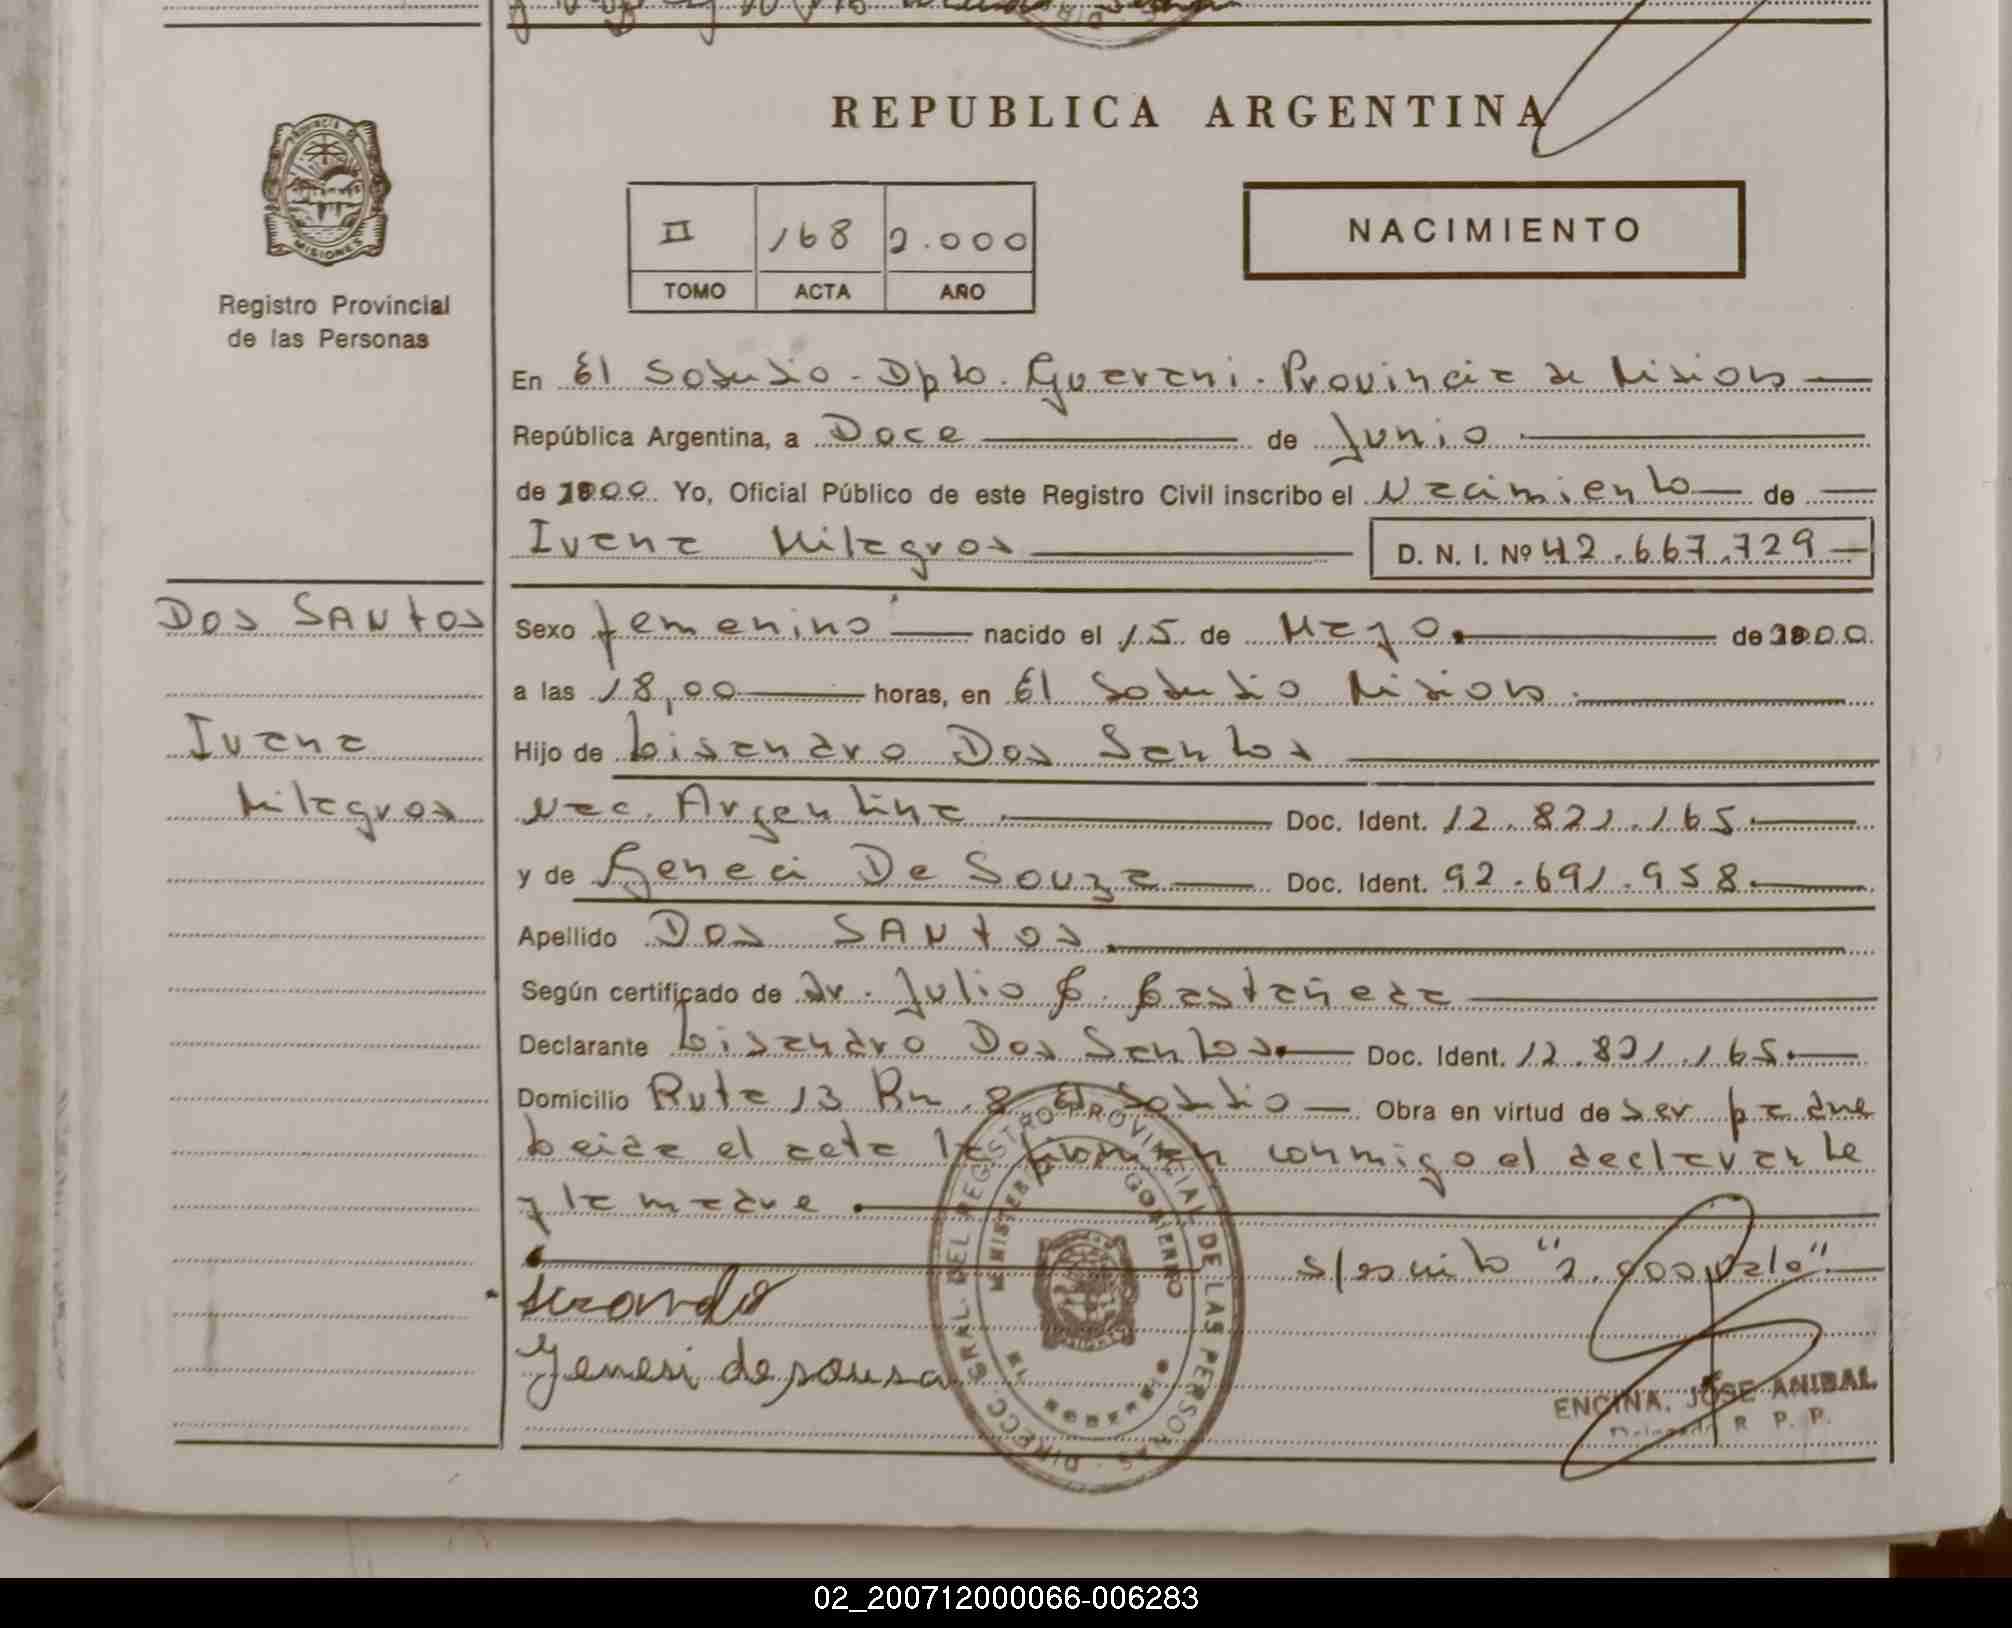 REPUBLICA ARGENTINA
PROVINCIA DE
MISIONES
Registro Provincial
de las Personas
II 168 2.000
TOMO ACTA AÑO
NACIMIENTO
En El Soberbio - Dpto. Guarani - Provincia de Misiones
República Argentina, a Doce de Junio
de 2000. Yo, Oficial Público de este Registro Civil inscribo el Nacimiento de
Ivana Milagros D. N. I. Nº 42.667.729
DOS SANtOS
Ivana
Milagros
Sexo femenino nacido el 15 de Mayo de 2000
a las 18,00 horas, en El Soberbio Misiones.
Hijo de Lisandro Dos Santos
Nac. Argentina Doc. Ident. 12.821.165
y de Geneci De Souza Doc. Ident. 92.691.958
Apellido DOS SANtOS
Según certificado de Dr. Julio C. Castañeda
Declarante Lisandro Dos Santos Doc. Ident. 12.821.165
Domicilio Ruta 13 Km. 8 El Soberbio Obra en virtud de ser padre
Leida el acta la firman conmigo el declarante
y la madre
s/escrito "2.000 vale"
Genesi de sousa
DIRECC. GRAL. DEL REGISTRO PROVINCIAL DE LAS PERSONAS
MINISTERIO GOBIERNO
EL SOBERBIO
ENCINA, JOSE ANIBAL
Delegado R. P. P.
02_200712000066-006283